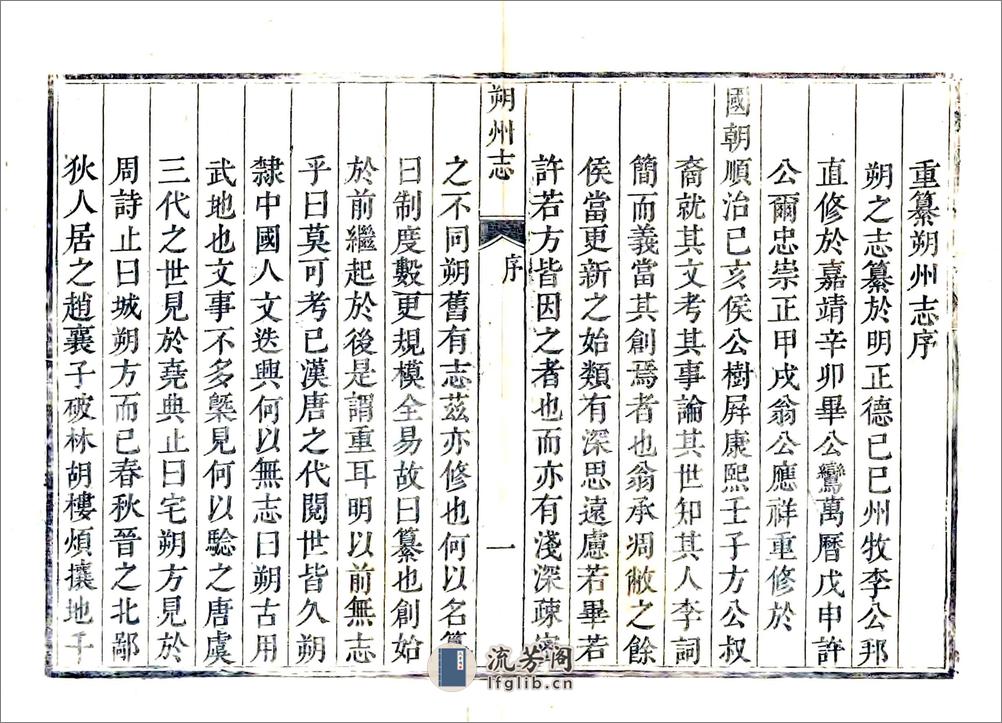 重纂朔州志序
朔之志纂於明正德己巳州牧李公邦
直修於嘉靖辛卯畢公鸞萬曆戊申許
公爾忠崇正甲戌翁公應祥重修於
國朝順治己亥侯公樹屛康熙壬子方公叔
裔就其文考其事論其世知其人李詞
簡而義當其創焉者也翁承凋敝之餘
侯當更新之始類有深思遠慮若畢若
許若方皆因之者也而亦有淺深疎密
朔州志
序
一
之不同朔舊有志茲亦修也何以名纂
曰制度數更規模全易故曰纂也創始
於前繼起於後是謂重耳明以前無志
乎曰莫可考已漢唐之代閱世皆久朔
隸中國人文迭興何以無志曰朔古用
武地也文事不多槩見何以騐之唐虞
三代之世見於堯典止曰宅朔方見於
周詩止曰城朔方而已春秋晉之北鄙
狄人居之趙襄子破林胡樓煩攘地千
流芳阁
lfglib.cn